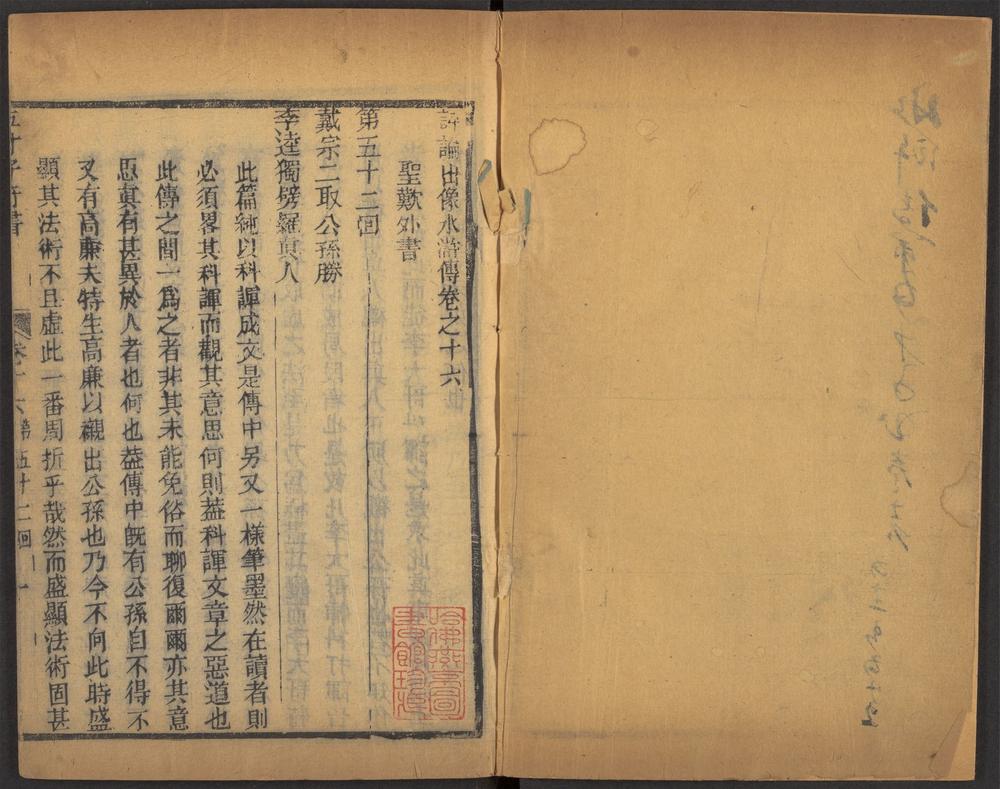 評論出像水滸傳卷之十六
聖歎外書
第五十二回
戴宗二取公孫勝
李逵獨劈羅真人
此篇純以科諢成文是傳中另又一樣筆墨然在讀者則
必須畧其科諢而觀其意思何則葢科諢文章之惡道也
此傳之間一爲之者非其未能免俗而聊復爾爾亦其意
思真有甚異於人者也何也葢傳中旣有公孫自不得不
又有高廉夫特生高廉以襯出公孫也乃今不向此時盛
顯其法術不且虛此一番周折乎哉然而盛顯法術固甚
五才子奇書 卷十六 第五十二回 一
哈佛燕京圖書館珍藏